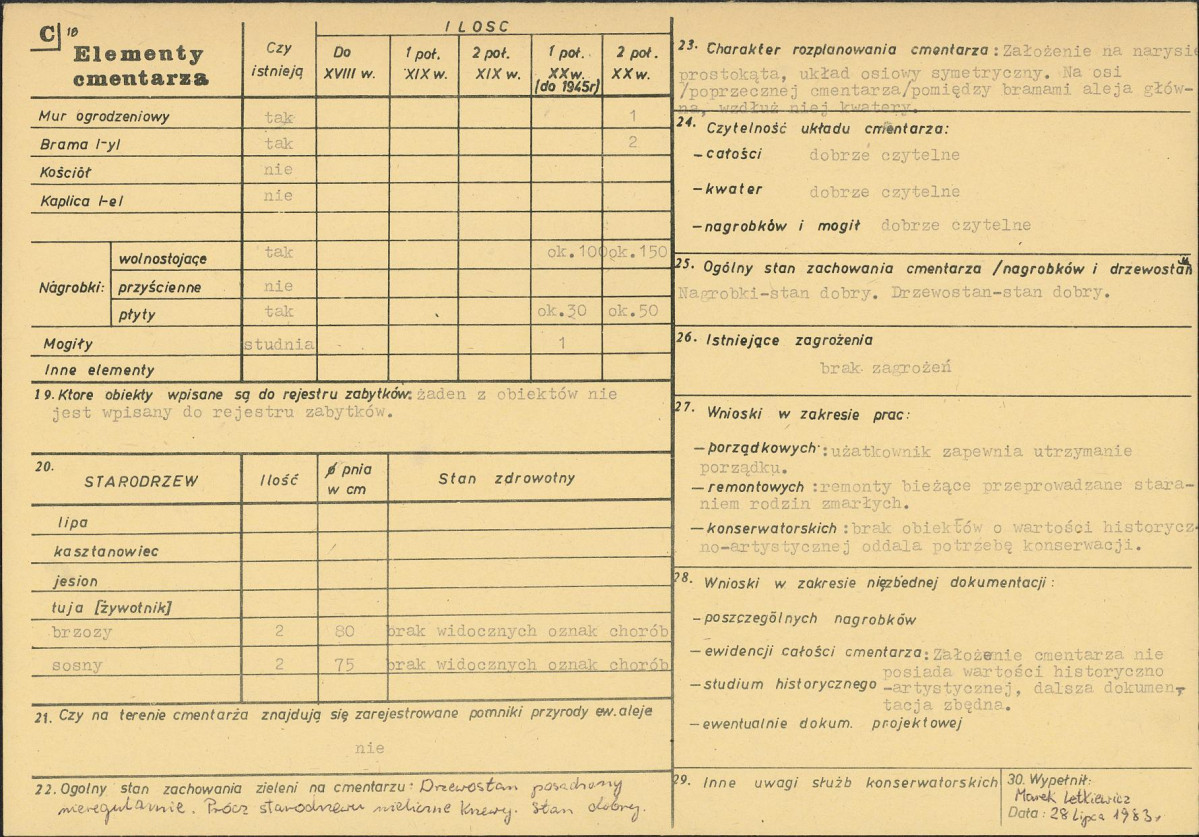 C 18
Elementy
cmentarza
Czy
istnieją
ILOSC
Do
XVIII w.
1 poł.
XIX w.
2 poł.
XIX w.
1 poł.
XX w.
(do 1945r)
2 poł.
XX w.
Mur ogrodzeniowy tak 1
Brama l-yl tak 2
Kościół nie
Kaplica l-el nie
Nagrobki:
wolnostojące tak ok.100 ok.150
przyścienne nie
płyty tak ok.30 ok.50
Mogiły studnia 1
Inne elementy
19. Ktore obiekty wpisane są do rejestru zabytków: żaden z obiektów nie
jest wpisany do rejestru zabytków.
20.
STARODRZEW Ilość ø pnia
w cm Stan zdrowotny
lipa
kasztanowiec
jesion
tuja [żywotnik]
brzozy 2 80 brak widocznych oznak chorób
sosny 2 75 brak widocznych oznak chorób
21. Czy na terenie cmentarza znajdują się zarejestrowane pomniki przyrody ew. aleje
nie
22. Ogolny stan zachowania zieleni na cmentarzu: Drzewostan posadzony
nieregularnie. Prócz starodrzewu nieliczne krzewy. Stan dobry.
23. Charakter rozplanowania cmentarza: Założenie na narysie
prostokąta, układ osiowy symetryczny. Na osi
/poprzecznej cmentarza/pomiędzy bramami aleja głów-
na, wzdłuż niej kwatery.
24. Czytelność układu cmentarza:
– całości dobrze czytelne
– kwater dobrze czytelne
– nagrobków i mogił dobrze czytelne
25. Ogólny stan zachowania cmentarza /nagrobków i drzewostan
Nagrobki-stan dobry. Drzewostan-stan dobry.
26. Istniejące zagrożenia
brak zagrożeń
27. Wnioski w zakresie prac:
– porządkowych: użatkownik zapewnia utrzymanie
porządku.
– remontowych: remonty bieżące przeprowadzane stara-
niem rodzin zmarłych.
– konserwatorskich: brak obiektów o wartości historycz-
no-artystycznej oddala potrzebę konserwacji.
28. Wnioski w zakresie niezbędnej dokumentacji:
– poszczególnych nagrobków
– ewidencji całości cmentarza: Założenie cmentarza nie
posiada wartości historyczno
– studium historycznego -artystycznej, dalsza dokumen-
tacja zbędna.
– ewentualnie dokum. projektowej
29. Inne uwagi służb konserwatorskich
30. Wypełnił:
Marek Letkiewicz
Data: 28 lipca 1983 r